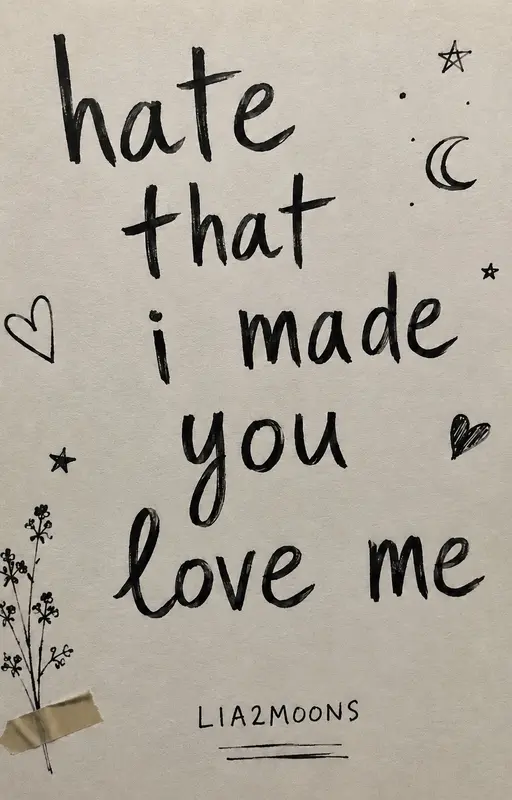 hate
that
i made
you
love me
LIA2MOONS